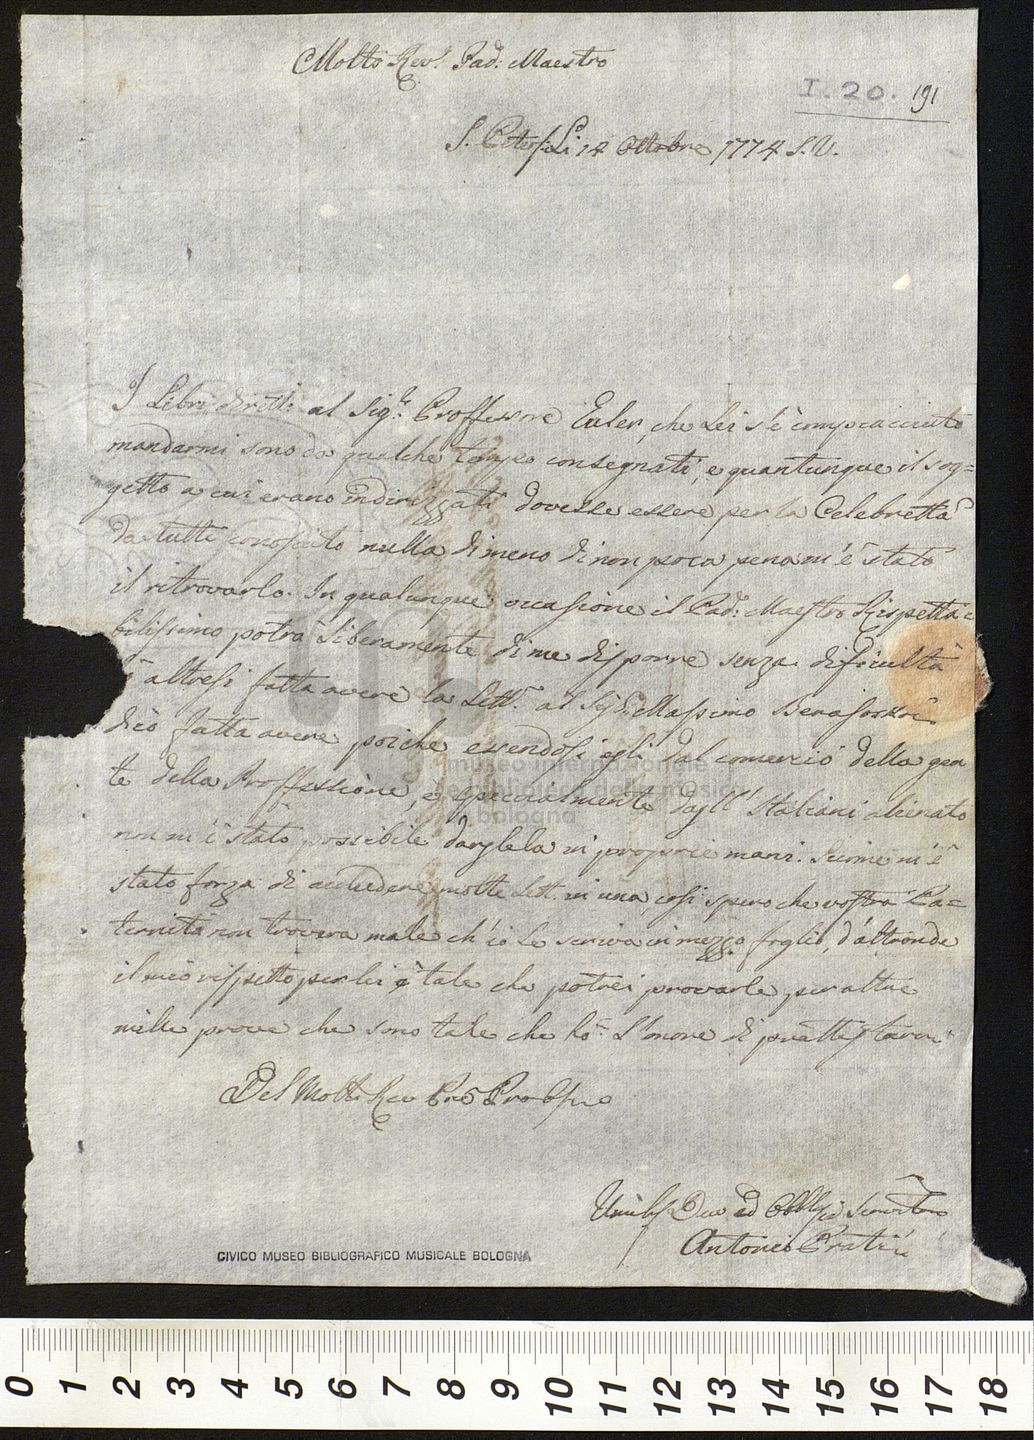 Molto Rev: Pad: Maestro
I. 20. 191
S. Petersb: Li 14 Ottobre 1774 S.V.
I Libri diretti al Sig.r Proffessore Euler, che Lei s'è compiacciuto
mandarmi sono da qualche tempo consegnati, e quantunque il sog=
getto a cui erano indirizzati dovesse essere per la Celebrettà
da tutti conosciuto nulla di meno di non poca pena m'è stato
il ritrovarlo. In qualunque occasione il Pad: Maestro Rispetta=
bilissimo potrà Liberamente di me disporre senza dificultà
altresi fatta avere la Lett.a al Sig.r Massimo
dicò fatta avere poiche essendosi egli dal comercio della gen
te della Proffessione, e specialmente dagl' Italiani alienato
non m'è stato possibile dargliela in proprie mani. Sicime m'è
stato forza di accludere molte Lett. in una, cosi spero che vostra Pa=
ternità non troverà male ch'io Le scriva in mezzo foglio, d'altronde
il mio rispetto per lei è tale che potrei provarle per altre
mille prove che sono tale che hò L'onore di
Del Molto Rev Prõ
Umilis Dev ed Obblig
Antonio Pratí
museo internazionale
e biblioteca della musica
bologna
CIVICO MUSEO BIBLIOGRAFICO MUSICALE BOLOGNA
0 1 2 3 4 5 6 7 8 9 10 11 12 13 14 15 16 17 18